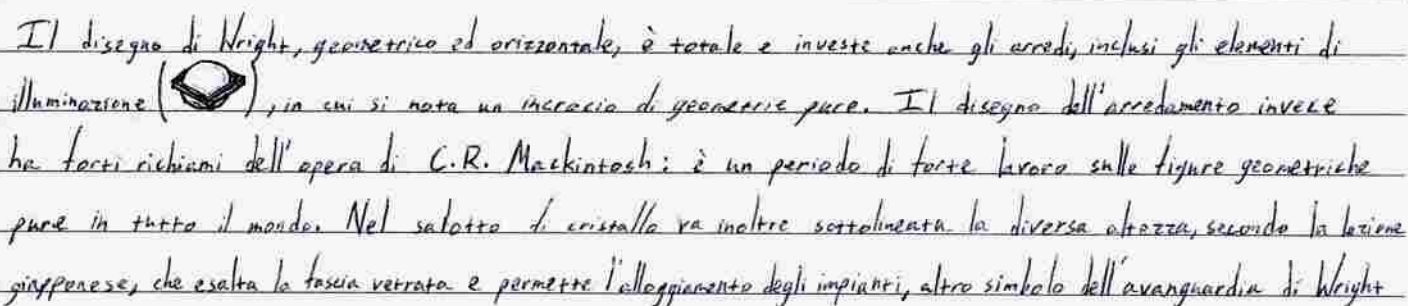 Il disegno di Wright, geometrico ed orizzontale, è totale e investe anche gli arredi, inclusi gli elementi di
illuminazione ( ), in cui si nota un incrocio di geometrie pure. Il disegno dell'arredamento invece
ha forti richiami dell'opera di C.R. Mackintosh: è un periodo di forte lavoro sulle figure geometriche
pure in tutto il mondo. Nel salotto di cristallo va inoltre sottolineata la diversa altezza, secondo la lezione
giapponese, che esalta la fascia vetrata e permette l'alloggiamento degli impianti, altro simbolo dell'avanguardia di Wright